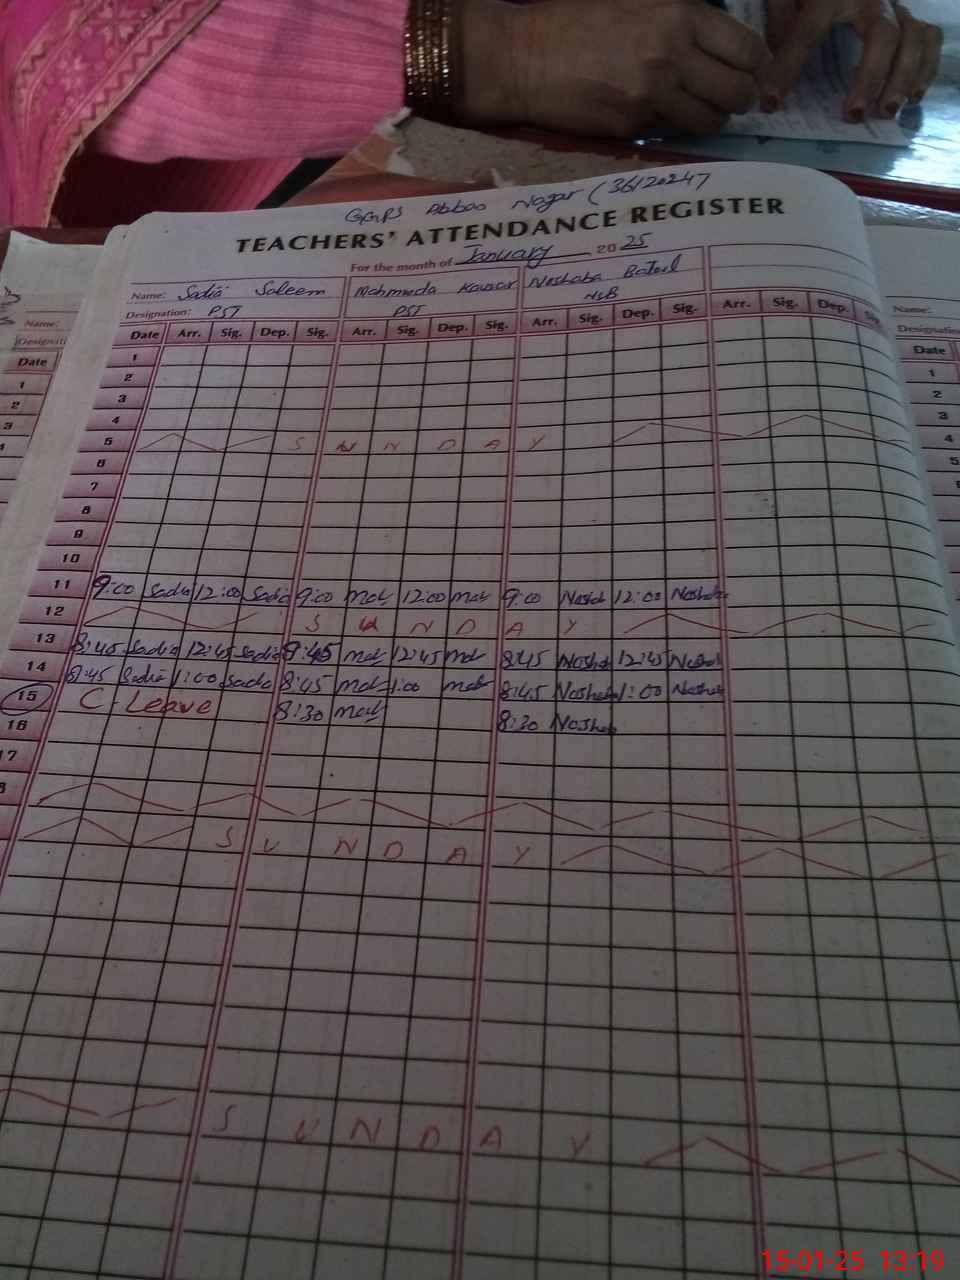 GGPS Abbas Nagar (36120247
TEACHERS' ATTENDANCE REGISTER
For the month of January 2025
Name: Sadia Saleem Mahmuda Kausar Noshaba Batool
Designation: PST PST NSB
Date Arr. Sig. Dep. Sig. Arr. Sig. Dep. Sig. Arr. Sig. Dep. Sig. Arr. Sig. Dep. Sig.
1
2
3
4
5 S U N D A Y
6
7
8
9
10
11 9:00 Sadia 12:00 Sadia 9:00 Mah 12:00 Mah 9:00 Noshab 12:00 Noshaba
12 S U N D A Y
13 8:45 Sadia 12:45 Sadia 8:45 Mah 12:45 Mah 8:45 Noshab 12:45 Noshab
14 8:45 Sadia 1:00 Sadia 8:45 Mah 1:00 Mah 8:45 Noshab 1:00 Noshab
15 C. Leave 8:30 Mah 8:30 Noshab
16
17
S U N D A Y
S U N D A Y
Name:
Date
1
2
3
4
Name:
Designation
Date
1
2
3
4
5
15-01-25 13:19